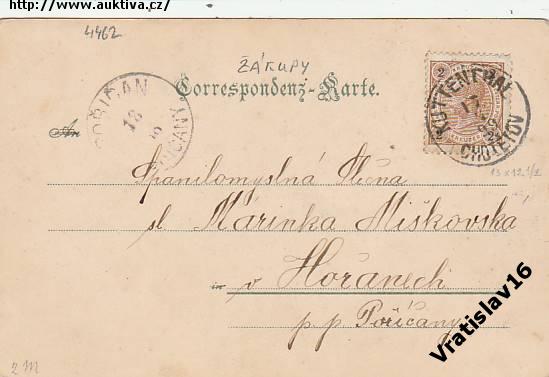 http://www.auktiva.cz/
4462
ZÁKUPY
Correspondenz-Karte.
An
POŘIČAN
18
5
2
KUTTENTHAL
17
5
99
CHOTĚTOV
13 x 12 1/2
Spanilomyslná Slečna
sl Mářinka Miškovska
in v Hořanech
p. p. Poříčany
Vratislav16
2M